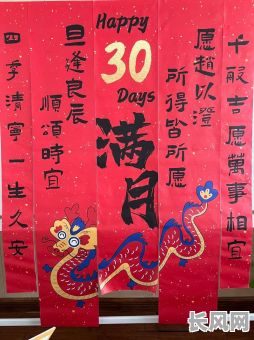 Happy
30
Days
满月
千般吉愿萬事相宜
愿趙以澄
所得皆所愿
旦逢良辰
順頌時宜
四季清寧一生久安
长风网